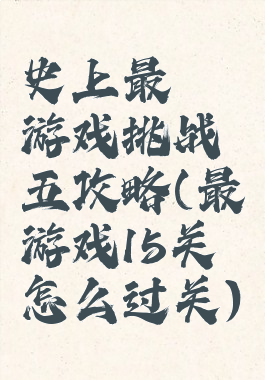 史上最
游戏挑战
五攻略(最
游戏15关
怎么过关)